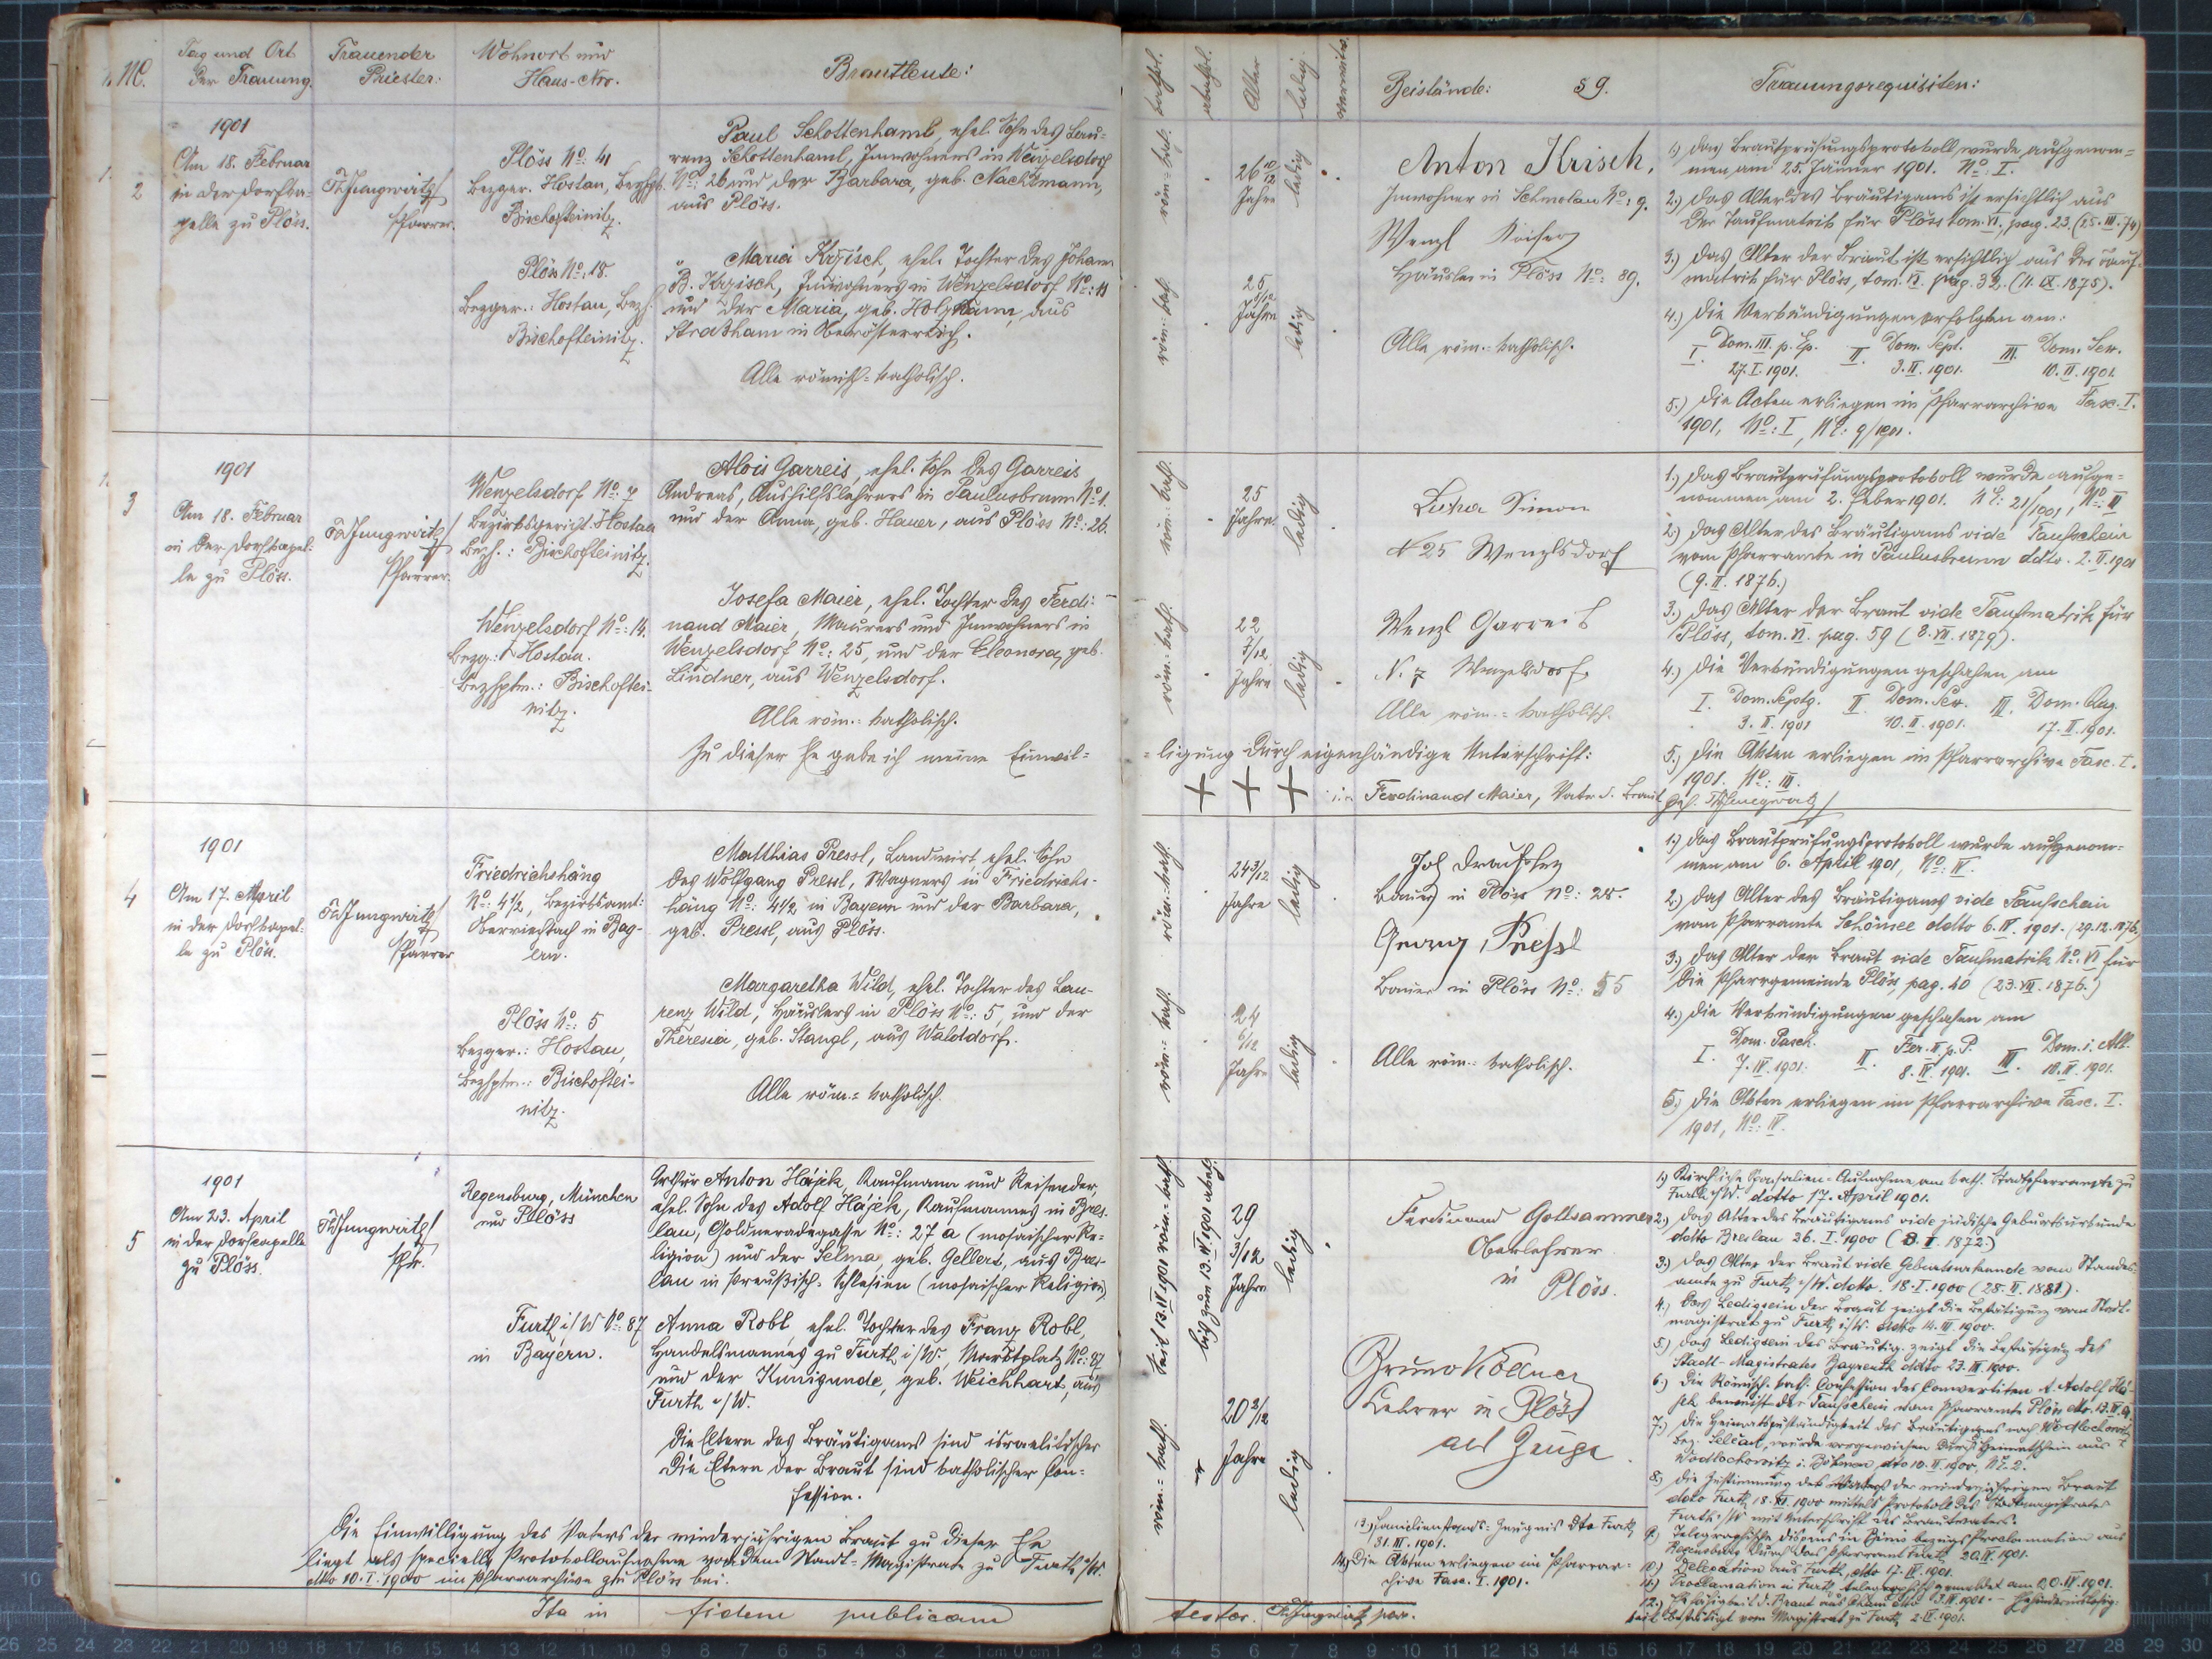 Tag und Ort
der Trauung.
Trauender
Priester:
Wohnort und
Haus-Nro.
Brautleute:
kathol.
Alter
ledig.
verwitw.
Beistände: § 9.
Trauungsrequisiten:
2
1901
Am 18. Februar
in der Dorfka-
pelle zu Plöss.
Jungwirth
Pfarrer.
Plöss No: 41
Bezger. Hostau, Bezhpt.
Bischofteinitz.
Plöss No: 18.
Bezger.: Hostau, Bezh.
Bischofteinitz.
Paul Schottenhaml, ehel. Sohn des Lau-
renz Schottenhaml, Inwohners in Wenzelsdorf
No: 26 und der Barbara, geb. Nachtmann,
aus Plöss.
Maria Krzisch, ehel. Tochter des Johann
B. Krzisch, Inwohners in Wenzelsdorf No: 11
und der Maria, geb. Holzmann, aus
Straßham in Oberösterreich.
Alle römisch-katholisch.
röm.-kath.
26 10/12
Jahre
ledig
röm.-kath.
25
Jahre
ledig
Anton Krisch,
Inwohner in Schmolau No: 9.
Wenzl
Häusler in Plöss No: 89.
Alle röm.-katholisch.
1.) Das Brautprüfungsprotokoll wurde aufgenom-
men am 25. Jänner 1901. No I.
2.) Das Alter des Bräutigams ist ersichtlich aus
der Taufmatrik für Plöss tom. VI., pag. 23. (15. III. 74)
3.) Das Alter der Braut ist ersichtlich aus der Tauf-
matrik für Plöss, tom. VI. pag. 32. (11. IX. 1875).
4.) Die Verkündigungen erfolgten am:
I. Dom. III. p. Ep. II. Dom. Sept. III. Dom. Sex.
27. I. 1901. 3. II. 1901. 10. II. 1901.
5.) Die Acten erliegen im Pfarrarchive Fasc. I.
1901, No: I, NE: 9/1901.
3
1901
Am 18. Februar
in der Dorfkapel-
le zu Plöss.
Jungwirth
Pfarrer.
Wenzelsdorf No: 7
Bezirksgericht Hostau
Bezh.: Bischofteinitz.
Wenzelsdorf No: 14.
Bezg.: Hostau.
Bezhptm.: Bischoftei-
nitz.
Alois Garreis, ehel. Sohn des Garreis
Andreas, Aushilfslehrers in Paulusbrunn No 1.
und der Anna, geb. Hauer, aus Plöss No: 26.
Josefa Maier, ehel. Tochter des Ferdi-
nand Maier, Maurers und Inwohners in
Wenzelsdorf No: 25, und der Eleonora, geb.
Lindner, aus Wenzelsdorf.
Alle röm.-katholisch.
Zu dieser Ehe gebe ich meine Einwil-
röm.-kath.
25
Jahre
ledig
röm.-kath.
22
7/12
Jahre
ledig
Simon
N 25 Wenzlsdorf
Wenzl Garreis
N. 7 Wenzelsdorf.
Alle röm.-katholisch.
ligung durch eigenhändige Unterschrift:
+ + + Ferdinand Maier, Vater d. Braut
1.) Das Brautprüfungsprotokoll wurde aufge-
nommen am 2. Feber 1901. NE: 21/1901, No II
2.) Das Alter des Bräutigams vide Taufschein
vom Pfarramte in Paulusbrunn ddto. 2. II. 1901
(9. II. 1876.)
3.) Das Alter der Braut vide Taufmatrik für
Plöss, tom. VI. pag. 59 (8. VII. 1879).
4.) Die Verkündigungen geschahen am
I. Dom. Septg. II Dom. Sex. III. Dom. Quq.
3. II. 1901 10. II. 1901. 17. II. 1901.
5.) Die Akten erliegen im Pfarrarchive Fasc. I.
1901. No: III.
4
1901
Am 17. April
in der Dorfkapel-
le zu Plöss.
Jungwirth
Pfarrer
Friedrichshäng
No: 4 1/2, Bezirksamt:
Oberviechtach in Bay-
ern.
Plöss No: 5
Bezger.: Hostau,
Bezhptm.: Bischoftei-
nitz.
Matthias Pressl, Landwirt, ehel. Sohn
des Wolfgang Pressl, Wagners in Friedrichs-
häng No: 4 1/2 in Bayern und der Barbara,
geb. Pressl, aus Plöss.
Margaretha Wild, ehel. Tochter des Lau-
renz Wild, Häuslers in Plöss No: 5, und der
Theresia, geb. Stangl, aus Walddorf.
Alle röm.-katholisch.
röm.-kath.
24 3/12
Jahre
ledig
röm.-kath.
24
6/12
Jahre
ledig
Bauer in Plöss No: 28.
Georg Pressl
Bauer in Plöss No: 55
Alle röm.-katholisch.
1.) Das Brautprüfungsprotokoll wurde aufgenom-
men am 6. April 1901, No: IV.
2.) Das Alter des Bräutigams vide Taufschein
vom Pfarramte Schönsee ddto 6. IV. 1901. (29.12.1876)
3.) Das Alter der Braut vide Taufmatrik No. VI für
die Pfarrgemeinde Plöss, pag. 40 (23. VII. 1876.)
4.) Die Verkündigungen geschahen am
I. Dom. Pasch. II. Fer. II. p. P. III. Dom. i. Alb.
7. IV. 1901. 8. IV. 1901. 1901.
5.) Die Akten erliegen im Pfarrarchive Fasc. I.
1901, No: IV.
5
1901
Am 23. April
in der Dorfcapelle
zu Plöss.
Jungwirth
Pfr.
Regensburg, München
und Plöss
Furth i/W No: 87
in Bayern.
Arthur Anton Hájek, Kaufmann und Reisender,
ehel. Sohn des Adolf Hájek, Kaufmannes in Bres-
lau, Goldneradegasse No: 27 a (mosaischer Re-
ligion) und der Selma, geb. Gellert, aus Bres-
lau in Preußisch-Schlesien (mosaischer Religion)
Anna Robl, ehel. Tochter des Franz Robl,
Handelsmannes zu Furth i/W., Marktplatz No: 87
und der Kunigunde, geb. Weichhart, aus
Furth i/W.
Die Eltern des Bräutigams sind israelitischer
Die Eltern der Braut sind katholischer Con-
fession.
Die Einwilligung des Vaters der minderjährigen Braut zu dieser Ehe
liegt als specielle Protokollaufnahme von dem Stadt-Magistrate zu Furth i/W.
ddto 10. I. 1900 im Pfarrarchive zu Plöss bei.
Ita in fidem publicam
testor. Jungwirth, par.
Seit 13. IV 1901 röm.-kath.
bis zum 13. IV. 1901 israel.
29
3/12
Jahre
ledig
röm.-kath.
20 3/12
Jahre
ledig
Ferdinand Gottsammer
Oberlehrer
in Plöss.
Bruno Köllner
Lehrer in Plöss
als Zeuge.
13.) Familienstands-Zeugnis ddto Furth
31. III. 1901.
14.) Die Akten erliegen im Pfarrar-
chive Fasc. I. 1901.
1.) Kirchliche Sponsalien-Aufnahme am kath. Stadtpfarramte zu
Furth i/W. ddto 17. April 1901.
2.) Das Alter des Bräutigams vide jüdische Geburtsurkunde
ddto Breslau 26. I. 1900 (1872.)
3.) Das Alter der Braut vide Geburtsurkunde vom Standes-
amte zu Furth i/W. ddto. 18. I. 1900 (28. II. 1881).
4.) Das Ledigsein der Braut zeigt die Bestätigung vom Stadt-
magistrat zu Furth i/W. ddto 14. III. 1900.
5.) Das Ledigsein des Bräutig. zeigt die Bestätigung des
Stadt-Magistrates Bayreuth ddto 23. III. 1900.
6.) Die Römisch-kath. Confession des Convertiten A. Adolf Há-
jek beweist der Taufschein vom Pfarramte Plöss ddto. 13. IV.
7.) Die Heimatszuständigkeit des Bräutigams nach Wodlochowitz
Bez. Selčan, wurde nachgewiesen durch Heimatschein aus
Wodlochowitz i. Böhmen
8.) Die Zustimmung des Vaters der minderjährigen Braut
ddto Furth, 18. 1900 mittels Protokoll des Stadtmagistrates
Furth i/W mit Unterschrift des Brautvaters.
9.) Telegraphische Dispens
Regensburg durch das Pfarramt Furth 20. IV. 1901.
10.) Delegation aus Furth, ddto 17. IV. 1901.
11.) Proclamation in Furth telegraphisch gemeldet am 20. IV. 1901.
bestätigt vom Magistrat zu Furth,